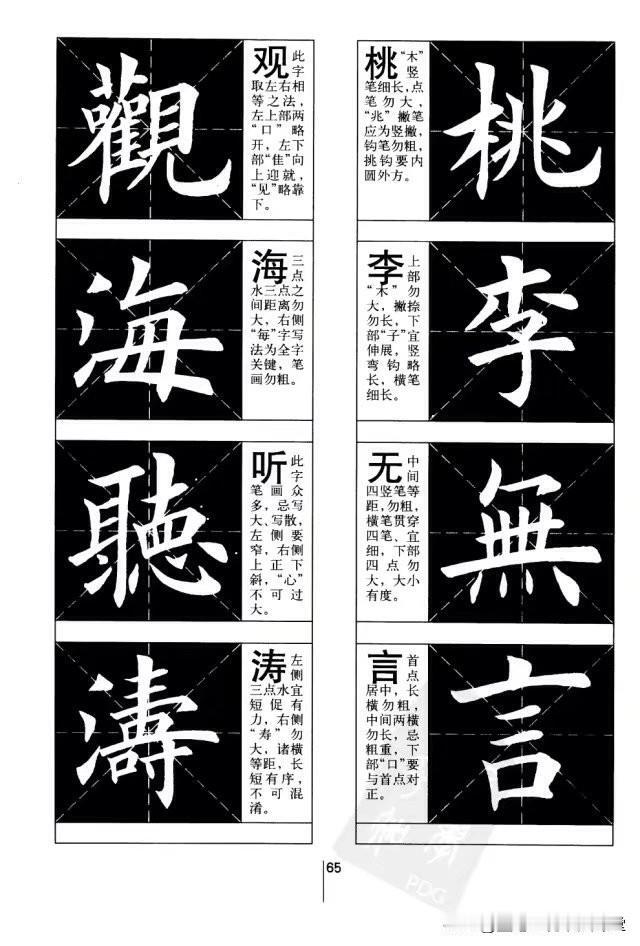 觀
观此
字
取左右相
等之法，
左上部两
“口”略
开，左下
部“佳”向
上迎就，
“见”略靠
下。
海
海三
点
水三点之
间距离勿
大，右侧
“每”字写
法为全字
关键，笔
画勿粗。
聽
听此
字
笔画众
多，忌写
大、写散，
左侧要
窄，右侧
上正下
斜，“心”
不可过
大。
濤
涛左
侧
三点水宜
短促有
力，右侧
“寿”勿
大，诸横
等距，长
短有序，
不可混
淆。
桃
桃“木”
竖
笔细长，点
笔勿大，
“兆”撇笔
应为竖撇，
钩笔勿粗，
挑钩要内
圆外方。
李
李上
部
“木”勿
大，撇捺
勿长，下
部“子”宜
伸展，竖
弯钩略
长，横笔
细长。
無
无中
间
四竖笔等
距，勿粗，
横笔贯穿
四笔、宜
细，下部
四点勿
大，大小
有度。
言
言首
点
居中，长
横勿粗，
中间两横
勿长，忌
粗重，下
部“口”要
与首点对
正。
65
PDG